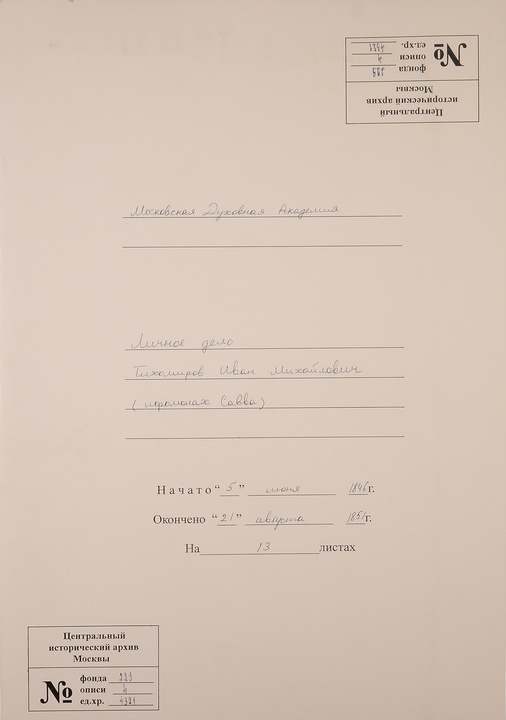 Центральный
исторический архив
Москвы
№
фонда 229
описи 4
ед.хр.
Московская Духовная Академия
Личное дело
Тихомиров Иван Михайлович
(иеромонах Савва)
Начато "5" июня 1846г.
Окончено "21" августа 1851г.
На 13 листах
Центральный
исторический архив
Москвы
№
фонда 229
описи 4
ед.хр.